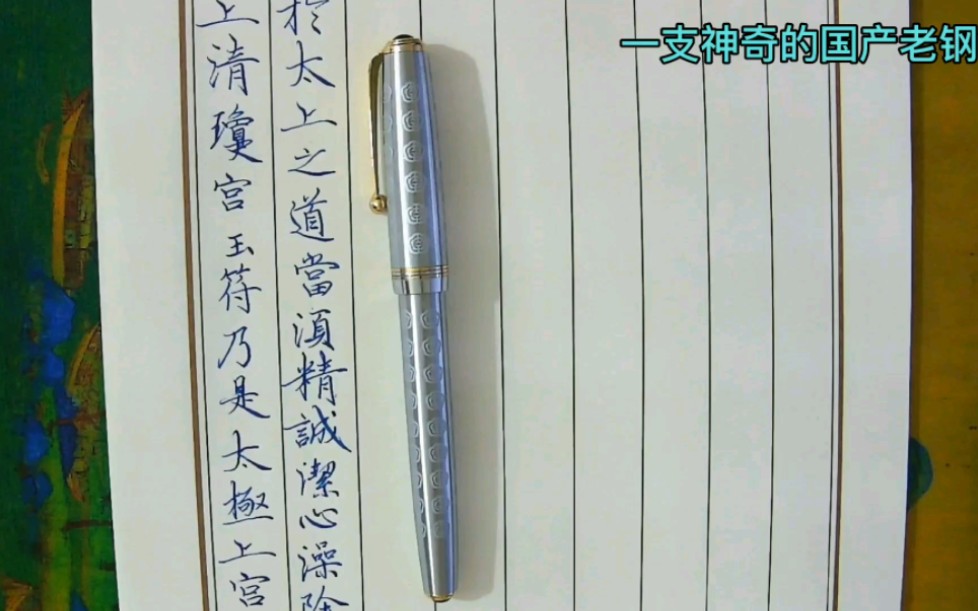 一支神奇的国产老钢
上清瓊宮玉符乃是太極上宮
扵太上之道當湏精誠潔心澡除